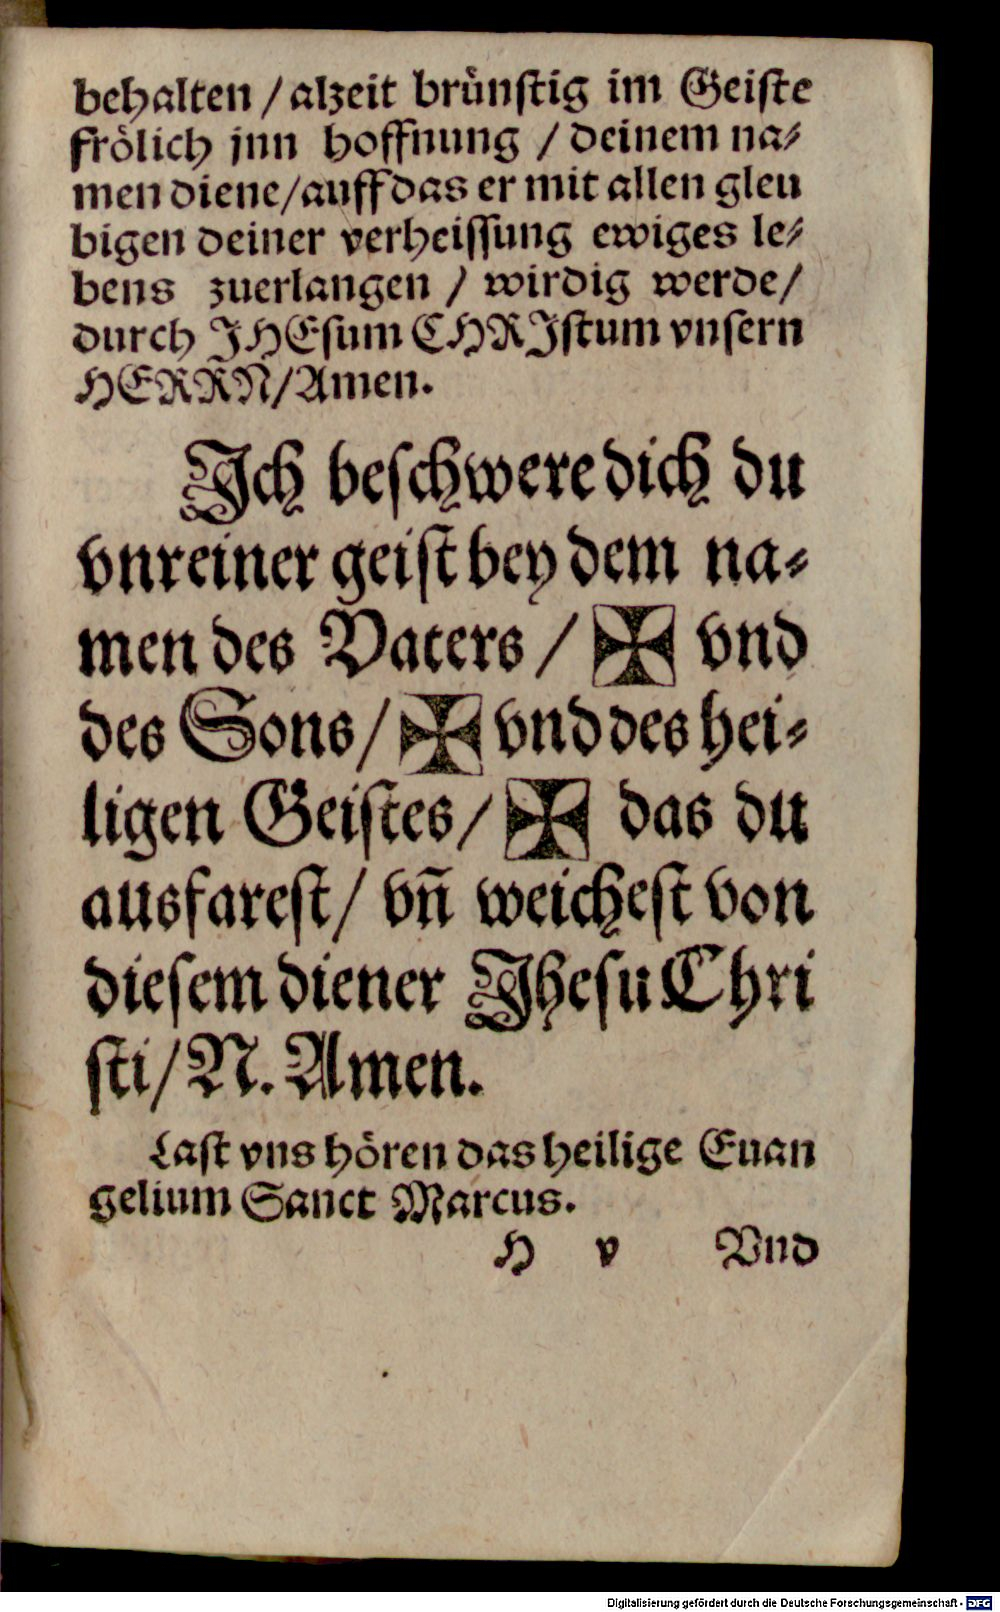 behalten / alzeit brünstig im Geiste
frölich jnn hoffnung / deinem na⸗
men diene / auff das er mit allen gleu
bigen deiner verheissung ewiges le⸗
bens zuerlangen / wirdig werde /
durch JHEsum CHRJstum vnsern
HERRN / Amen.
Jch beschwere dich du
vnreiner geist bey dem na⸗
men des Vaters / ✠ vnd
des Sons / ✠ vnd des hei⸗
ligen Geistes / ✠ das du
ausfarest / vñ weichest von
diesem diener Jhesu Chri
sti / N. Amen.
Last vns hören das heilige Euan
gelium Sanct Marcus.
H v Vnd
Digitalisierung gefördert durch die Deutsche Forschungsgemeinschaft - DFG